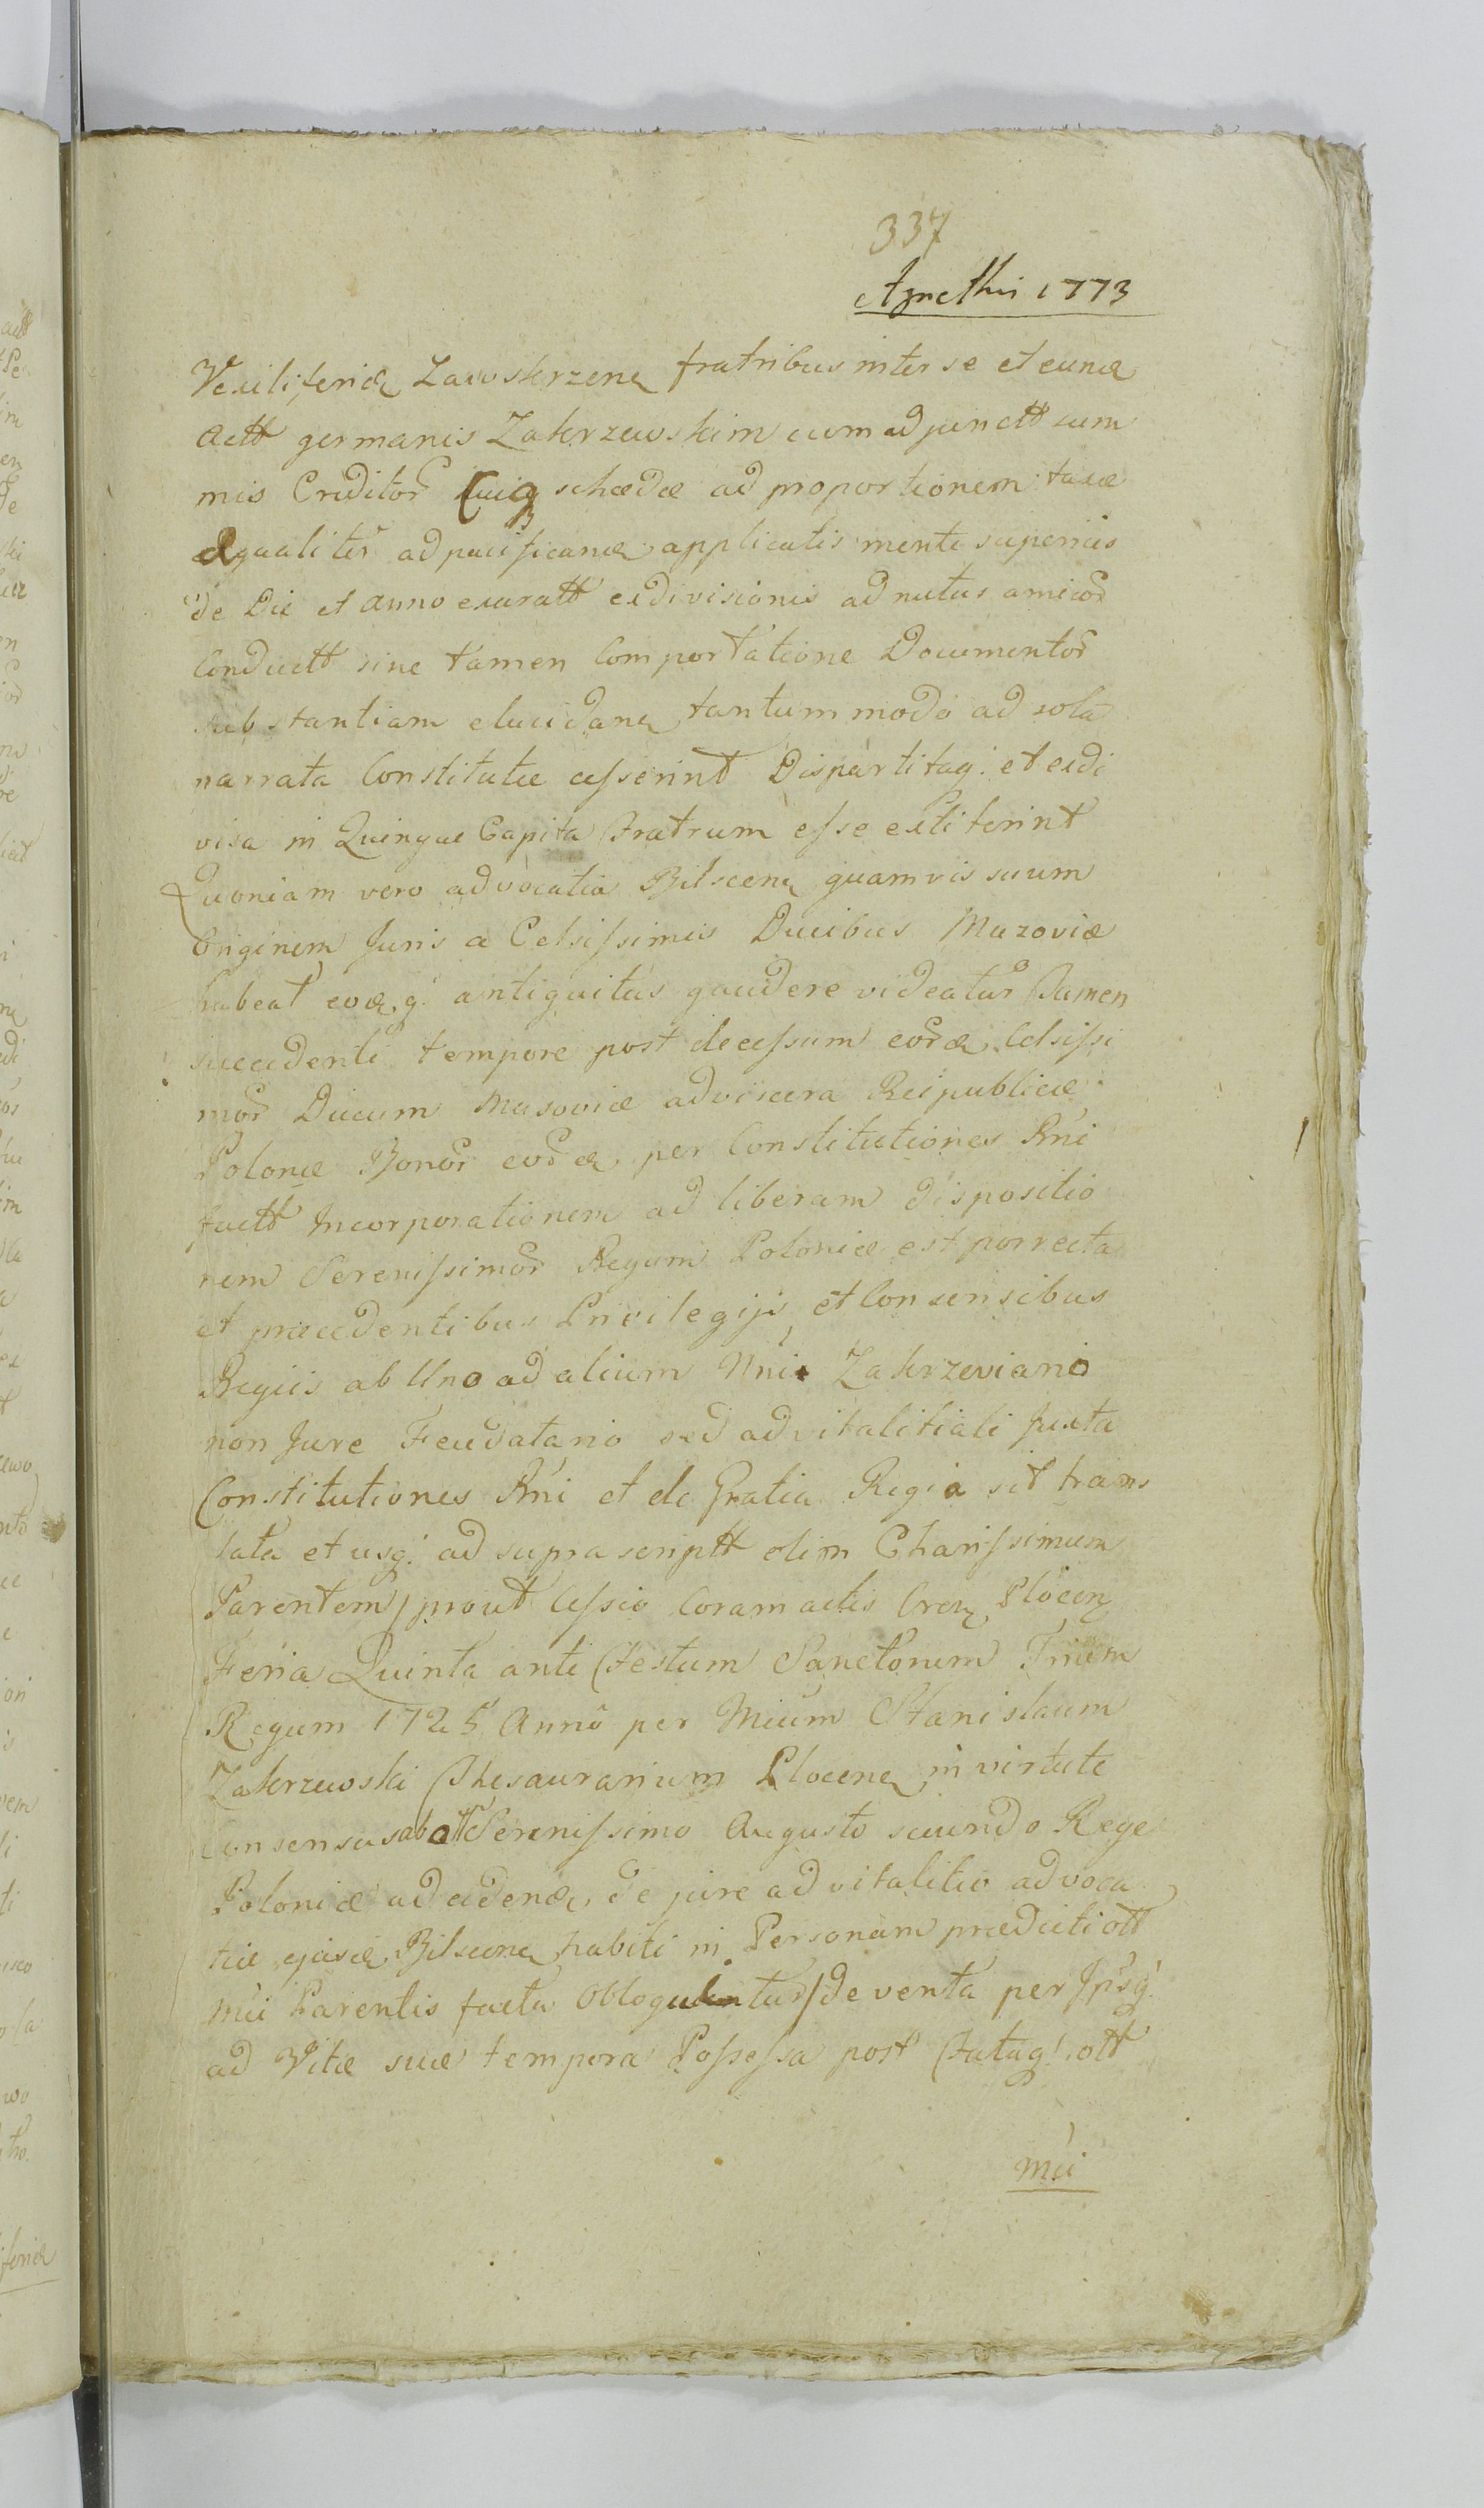 337
Agnethis 1773
Vexiliferidæ Zawskrzenę fratribus inter se et eunæ
actt germanis Zakrzewskim cum adjunctt sum
mis Creditor Cuiq schædæ ad proportionem taxæ
æqualiter ad pacificanæ applicatis mente superius
de Die et anno exaratt exdivisionis ad nutus amicor
Conductt sine tamen Comportatione Documentor
substantiam elucidanę tantummodo ad sola
narrata Constitutæ cesserint Dispartitaq: et exdi
visa in Quinque Capita Fratrum esse extiterint
Quoniam vero advocatia Bilscenę quamvis suum
Originem Juris a Celsissimis Ducibus Mazoviæ
habeat eoæq: antiquitus gaudere videatur Tamen
succedenti tempore post decessum eoræ Celsissi
mor Ducum Masoviæ ad viscera Reipublicæ
Polonæ Bonor eoræ per Constitutiones Rni
factt Incorporationem ad liberam dispositio
nem Serenissimor Regum Poloniæ est porrecta
et præcedentibus Privilegijs et Consensibus
Regiis ab Uno ad alium Nni Zakrzeviano
non Jure Feudatario sed advitalitiali Juxta
Constitutiones Rni et de Gratia Regia sit trans
lata et usq: ad suprascriptt olim Charissimum
Parentem prout Cessio Coram actis Cren Plocen
Feria Quinta ante Festum Sanctorum Trium
Regum 1725 Anno per Mium Stanislaum
Zakrzewski Thesaurarium Plocenę in virtute
Consensus ab ott Serenissimo Augusto secundo Rege
Poloniæ ad cedenæ de jure advitalitio advoca
tiæ ejusæ Bilscenę habiti in Personam prædicti ott
mii Parentis facta Obloquuntur deventa per Ipsq:
ad Vitæ suæ tempora Possessa post Fataq: ott
mii